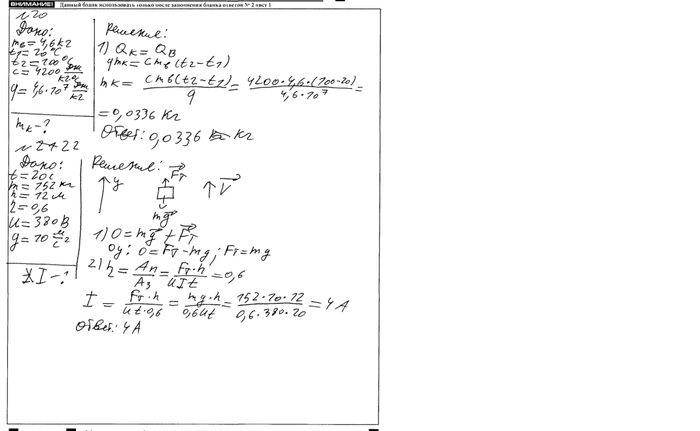 ВНИМАНИЕ! Данный бланк использовать только после заполнения бланка ответов № 2 лист 1
№20
Дано:
mв = 4,6 кг
t1 = 20°C
t2 = 100°C
c = 4200 Дж/кг°C
q = 4,6·10⁷ Дж/кг
mк - ?
Решение:
1) Qк = Qв
qmк = cmв(t2-t1)
mк = cmв(t2-t1)/q = 4200·4,6·(100-20)/4,6·10⁷ =
= 0,0336 кг
Ответ: 0,0336 кг
№ 22
Дано:
t = 20 с
m = 152 кг
h = 12 м
η = 0,6
U = 380 В
g = 10 м/с²
I - ?
Решение:
y
Fт
mg
V
1) 0 = mg + Fт
Oy: 0 = Fт - mg; Fт = mg
2) η = Aп/Aз = Fт·h/UIt = 0,6
I = Fт·h/Ut·0,6 = mg·h/0,6Ut = 152·10·12/0,6·380·20 = 4 A
Ответ: 4 A